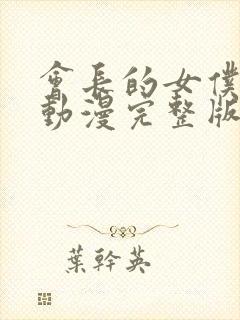 會長的女僕
動漫完整版
葉幹英